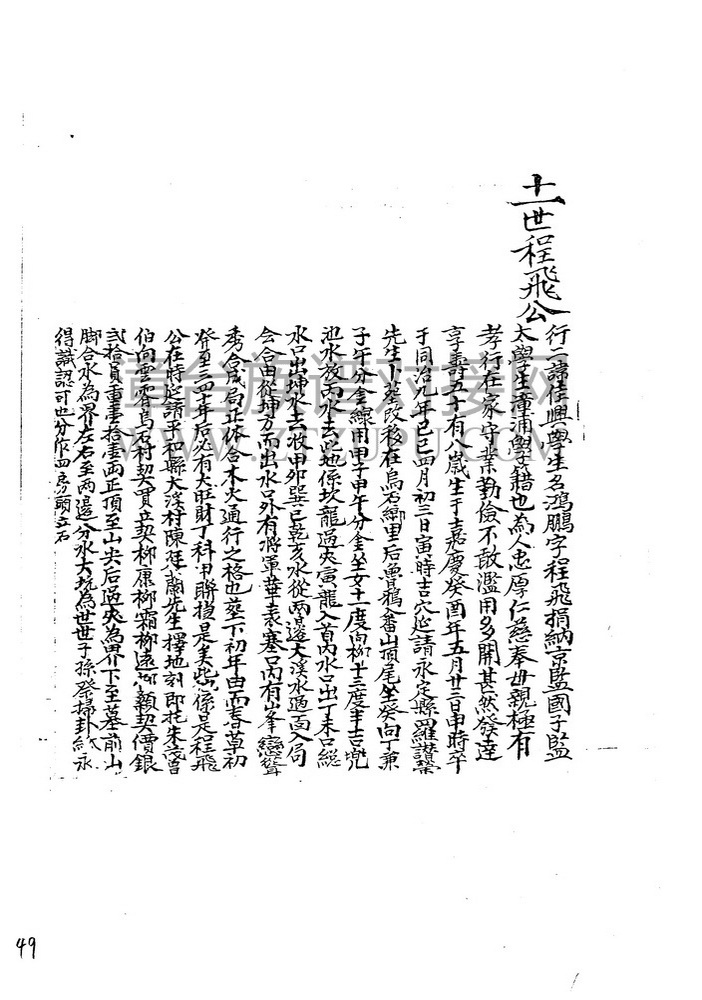 十一世程飛公
行二諱佳興學生名鴻鵬字程飛捐納京監國子監
太學生漳浦學籍也為人忠厚仁慈奉母親極有
孝行在家守業勤儉不敢濫用多開甚然發達
享壽五十有八歲生于嘉慶癸酉年五月廿三日申時卒
于同治九年己巳四月初三日寅時吉穴延請永定縣羅讚榮
先生卜葬改移在烏石鄉里后魯鴉畬山頂尾坐癸向丁兼
子午分金線用甲子甲午分金坐女十一度向柳十三度半吉兜
池水放丙水去此地係坎龍過夾寅龍入首內水口出丁未口總
水口出坤水去收甲卯巽巳乾亥水從兩邊大溪水過面入局
會合由從坤方而出水口外有將軍華表塞口內有山峯巒聳
秀合成局正依合木火通行之格也葬下初年由而春草初
發至三四十年后必有大旺財丁科甲聯捷是美此係是程飛
公在時延請平和縣大溪村陳廷蘭先生擇地刻即托朱亮曾
伯向雲霄烏石村契買立契柳康柳霜柳遠柳額契價銀
弍拾員重壹拾壹両正頂至山尖后過夾為界下至墓前山
脚合水為界左右至兩邊分水大坑為世世子孫祭掃卦紙永
得識認可也分作四房頭立石
49